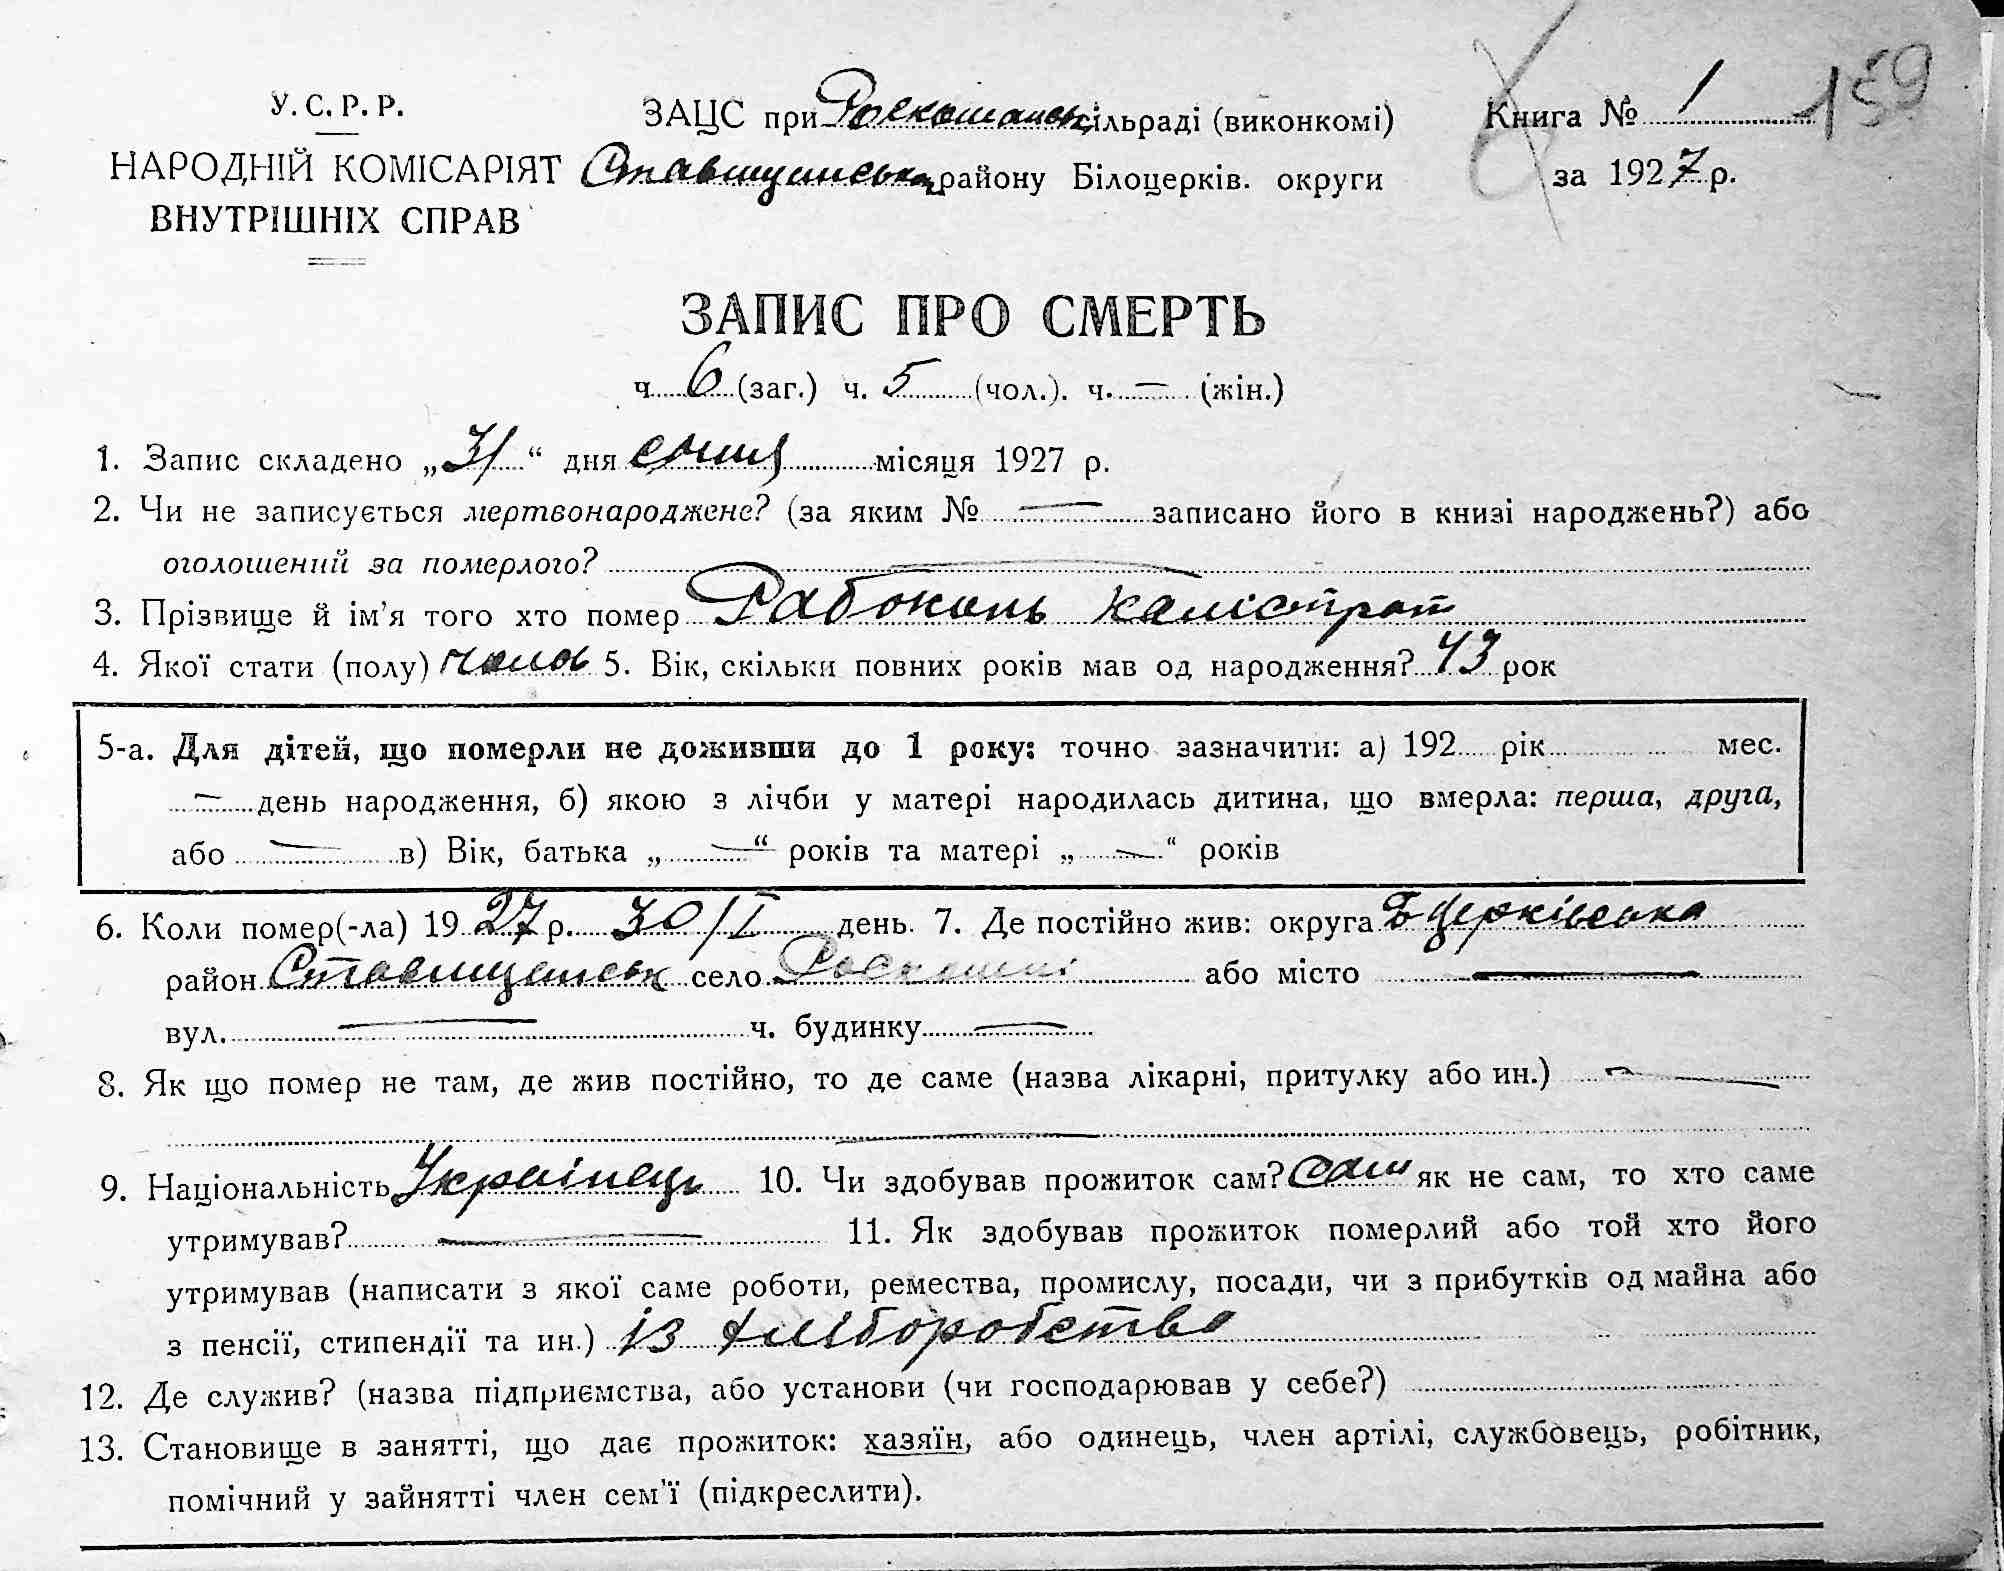 159
У. С. Р. Р.
НАРОДНІЙ КОМІСАРІЯТ
ВНУТРІШНІХ СПРАВ
ЗАЦС при Роскошанськ сільраді (виконкомі)
Ставищанськ району Білоцерків. округи
Книга № 1
за 1927 р.
ЗАПИС ПРО СМЕРТЬ
ч. 6 (заг.) ч. 5 (чол.). ч. — (жін.)
1. Запис складено „31“ дня січня місяця 1927 р.
2. Чи не записується мертвонароджене? (за яким № — записано його в книзі народжень?) або
оголошений за померлого? —
3. Прізвище й ім'я того хто помер Рабоконь Калістрат
4. Якої стати (полу) чолов 5. Вік, скільки повних років мав од народження? 43 рок
5-а. Для дітей, що померли не доживши до 1 року: точно зазначити: а) 192 рік мес.
— день народження, б) якою з лічби у матері народилась дитина, що вмерла: перша, друга,
або — в) Вік, батька „—“ років та матері „—“ років
6. Коли помер(-ла) 1927 р. 30/I день. 7. Де постійно жив: округа Бцерківська
район Ставищанськ село Роскошні або місто —
вул. — ч. будинку —
8. Як що помер не там, де жив постійно, то де саме (назва лікарні, притулку або ин.) —
—
9. Національність Українець 10. Чи здобував прожиток сам? сам як не сам, то хто саме
утримував? — 11. Як здобував прожиток померлий або той хто його
утримував (написати з якої саме роботи, ремества, промислу, посади, чи з прибутків од майна або
з пенсії, стипендії та ин.) із хліборобства
12. Де служив? (назва підприємства, або установи (чи господарював у себе?)
13. Становище в занятті, що дає прожиток: хазяїн, або одинець, член артілі, службовець, робітник,
помічний у зайнятті член сем'ї (підкреслити).